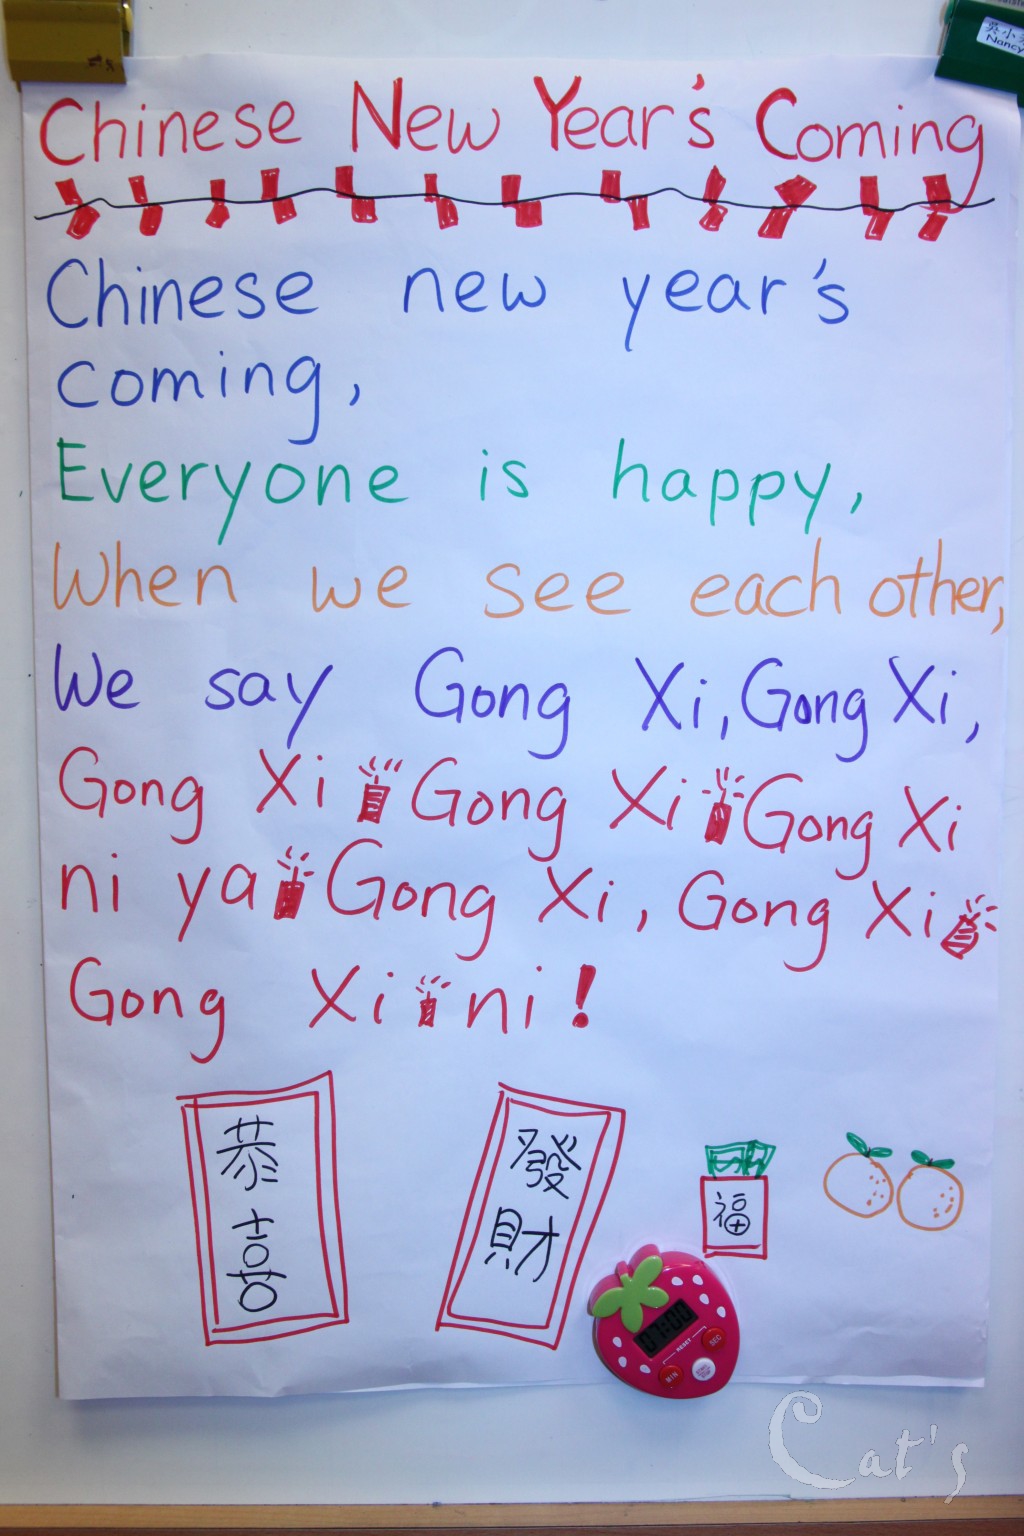 吳小
Nancy
Chinese New Year's Coming
Chinese new year's
coming,
Everyone is happy,
When we see each other,
We say Gong Xi, Gong Xi,
Gong Xi Gong Xi Gong Xi
ni ya Gong Xi, Gong Xi
Gong Xi ni!
恭喜
發財
福
01:00
RESET
SEC
MIN
Cat's